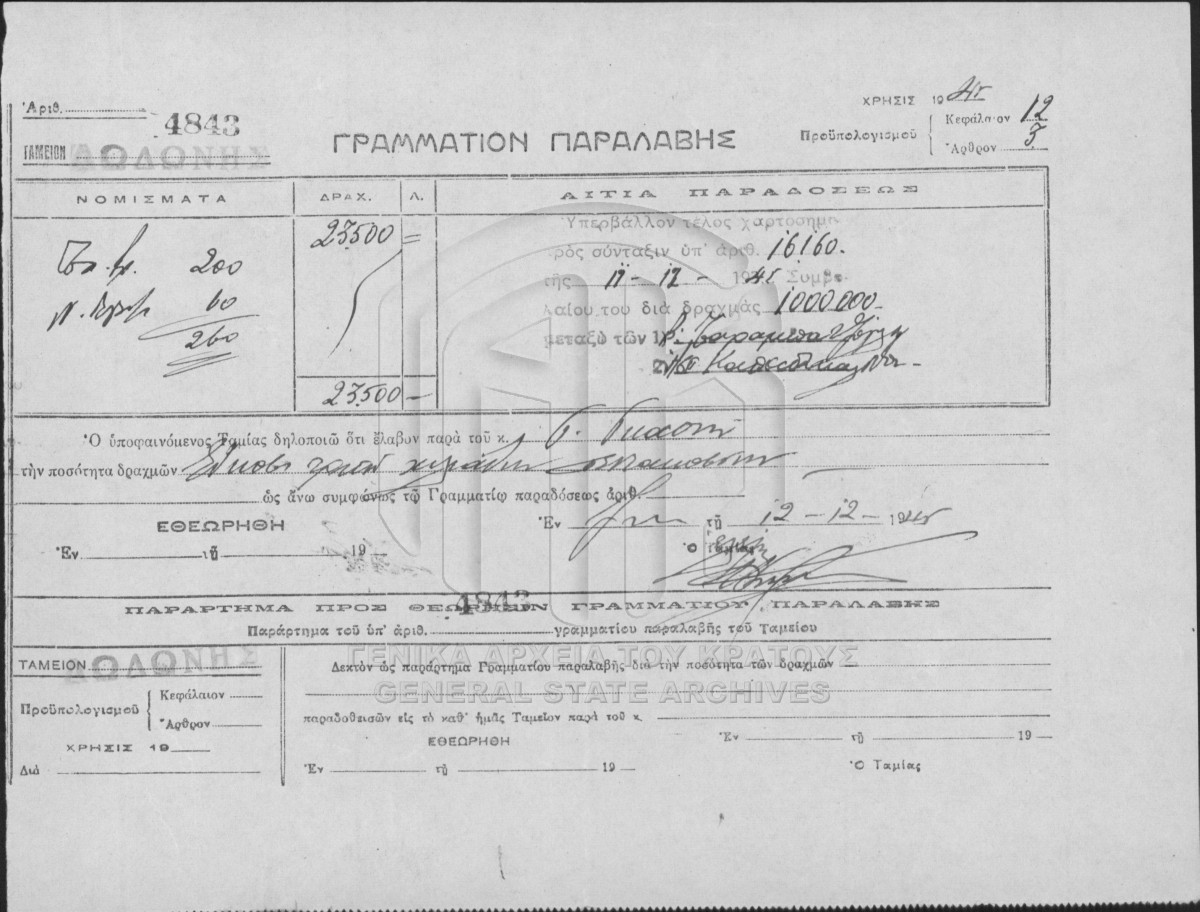 Ἀριθ. 4843
ΤΑΜΕΙΟΝ ΔΩΔΩΝΗΣ
ΓΡΑΜΜΑΤΙΟΝ ΠΑΡΑΛΑΒΗΣ
ΧΡΗΣΙΣ 19
Προϋπολογισμοῦ
Κεφάλαιον 12
Ἄρθρον
ΝΟΜΙΣΜΑΤΑ ΔΡΑΧ. Λ. ΑΙΤΙΑ ΠΑΡΑΔΟΣΕΩΣ
23.500 =
200
60
260
23.500 —
Ὑπερβάλλον τέλος χαρτοσήμο
πρός σύνταξιν ὑπ' ἀριθ. 16160.
τῆς 11-12- 19 Συμβο-
λαίου του διὰ δραχμάς 1000000
μεταξὺ τῶν
Ὁ ὑποφαινόμενος Ταμίας δηλοποιῶ ὅτι ἔλαβον παρὰ τοῦ κ.
τὴν ποσότητα δραχμῶν Εἴκοσι τριῶν χιλιάδων πεντακοσίων
ὡς ἄνω συμφώνως τῷ Γραμματίῳ παραδόσεως ἀριθ.
ΕΘΕΩΡΗΘΗ
Ἐν τῇ 12-12-19
Ἐν τῇ 19
Ὁ Ταμίας
4843
ΠΑΡΑΡΤΗΜΑ ΠΡΟΣ ΘΕΩΡΗΣΙΝ ΓΡΑΜΜΑΤΙΟΥ ΠΑΡΑΛΑΒΗΣ
Παράρτημα τοῦ ὑπ' ἀριθ. γραμματίου παραλαβῆς τοῦ Ταμείου
ΤΑΜΕΙΟΝ ΔΩΔΩΝΗΣ
Προϋπολογισμοῦ
Κεφάλαιον
Ἄρθρον
ΧΡΗΣΙΣ 19
Διὰ
Δεκτὸν ὡς παράρτημα Γραμματίου παραλαβῆς διὰ τὴν ποσότητα τῶν δραχμῶν
παραδοθεισῶν εἰς τὸ καθ' ἡμᾶς Ταμεῖον παρὰ τοῦ κ.
ΕΘΕΩΡΗΘΗ
Ἐν τῇ 19
Ἐν τῇ 19
Ὁ Ταμίας
ΓΕΝΙΚΑ ΑΡΧΕΙΑ ΤΟΥ ΚΡΑΤΟΥΣ
GENERAL STATE ARCHIVES